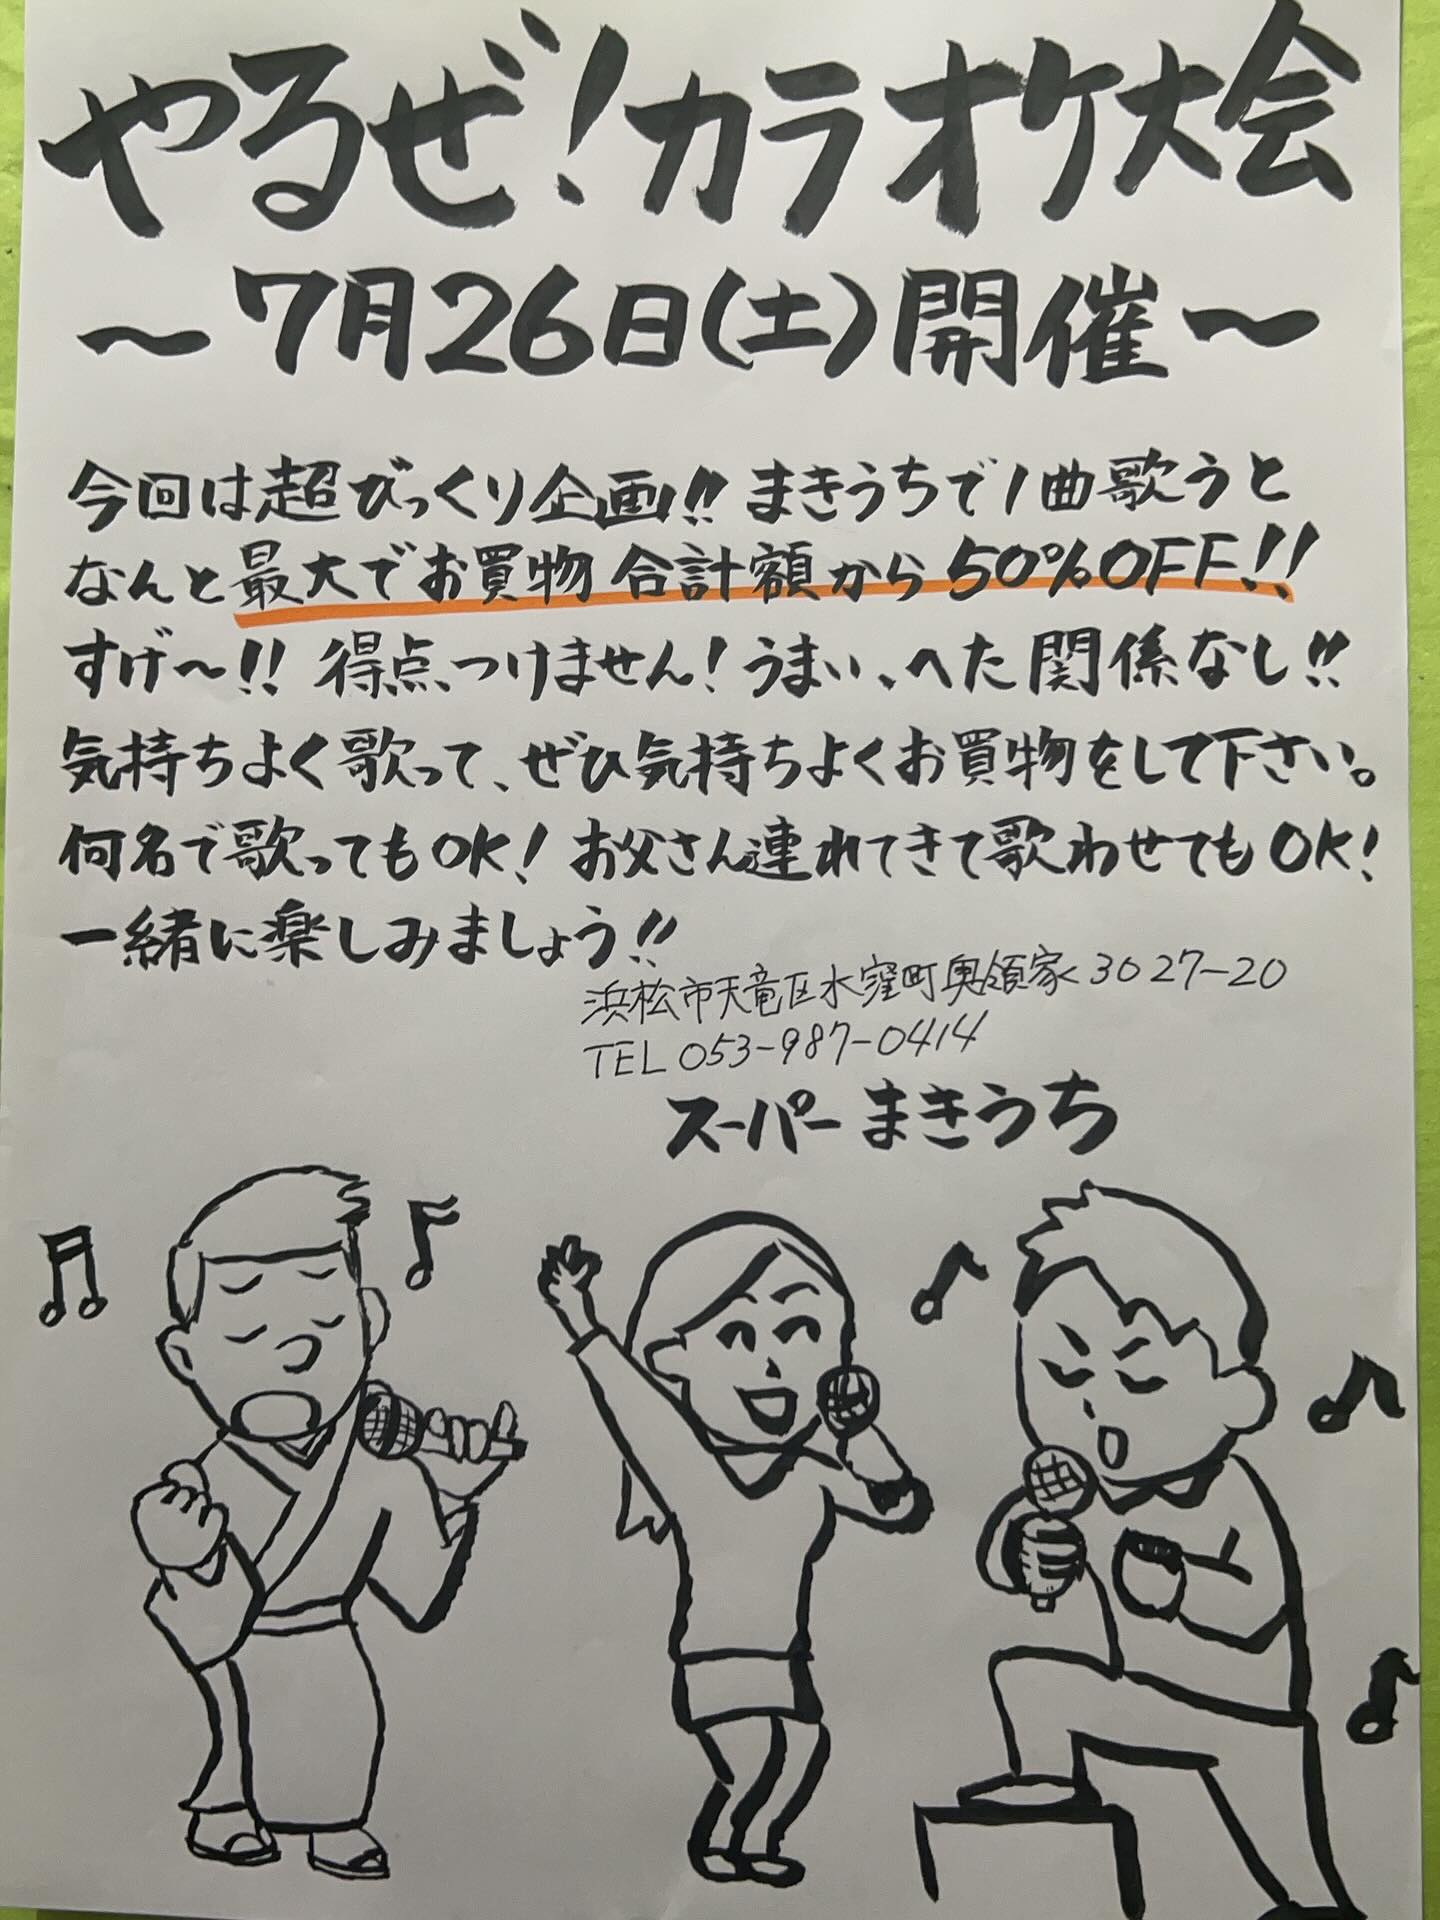 やるぜ!カラオケ大会
～7月26日(土)開催～
今回は超びっくり企画!!まきうちで1曲歌うと
なんと最大でお買物合計額から50%OFF!!
すげ～!!得点つけません!うまい、へた関係なし!!
気持ちよく歌って、ぜひ気持ちよくお買物をして下さい。
何名で歌ってもOK!お父さん連れてきて歌わせてもOK!
一緒に楽しみましょう!!
浜松市天竜区水窪町奥領家3027-20
TEL 053-987-0414
スーパーまきうち